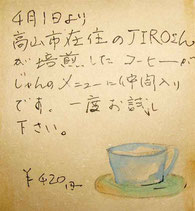 4月1日より
高山市在住のJIROさん
が焙煎したコーヒーが
じゃんのメニューに仲間入り
です。一度お試し
下さい。
¥420